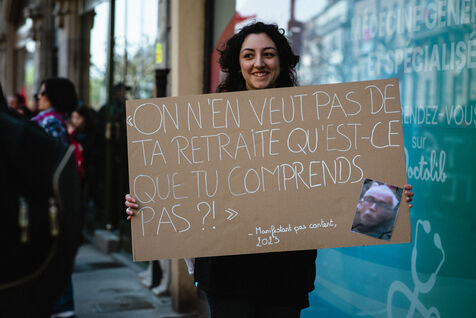 « ON N'EN VEUT PAS DE
TA RETRAITE QU'EST-CE
QUE TU COMPRENDS
PAS ?! »
- Manifestant pas content,
2023
MÉDECINE GÉNÉ
ET SPÉCIALISÉE
RENDEZ-VOUS
sur
Doctolib